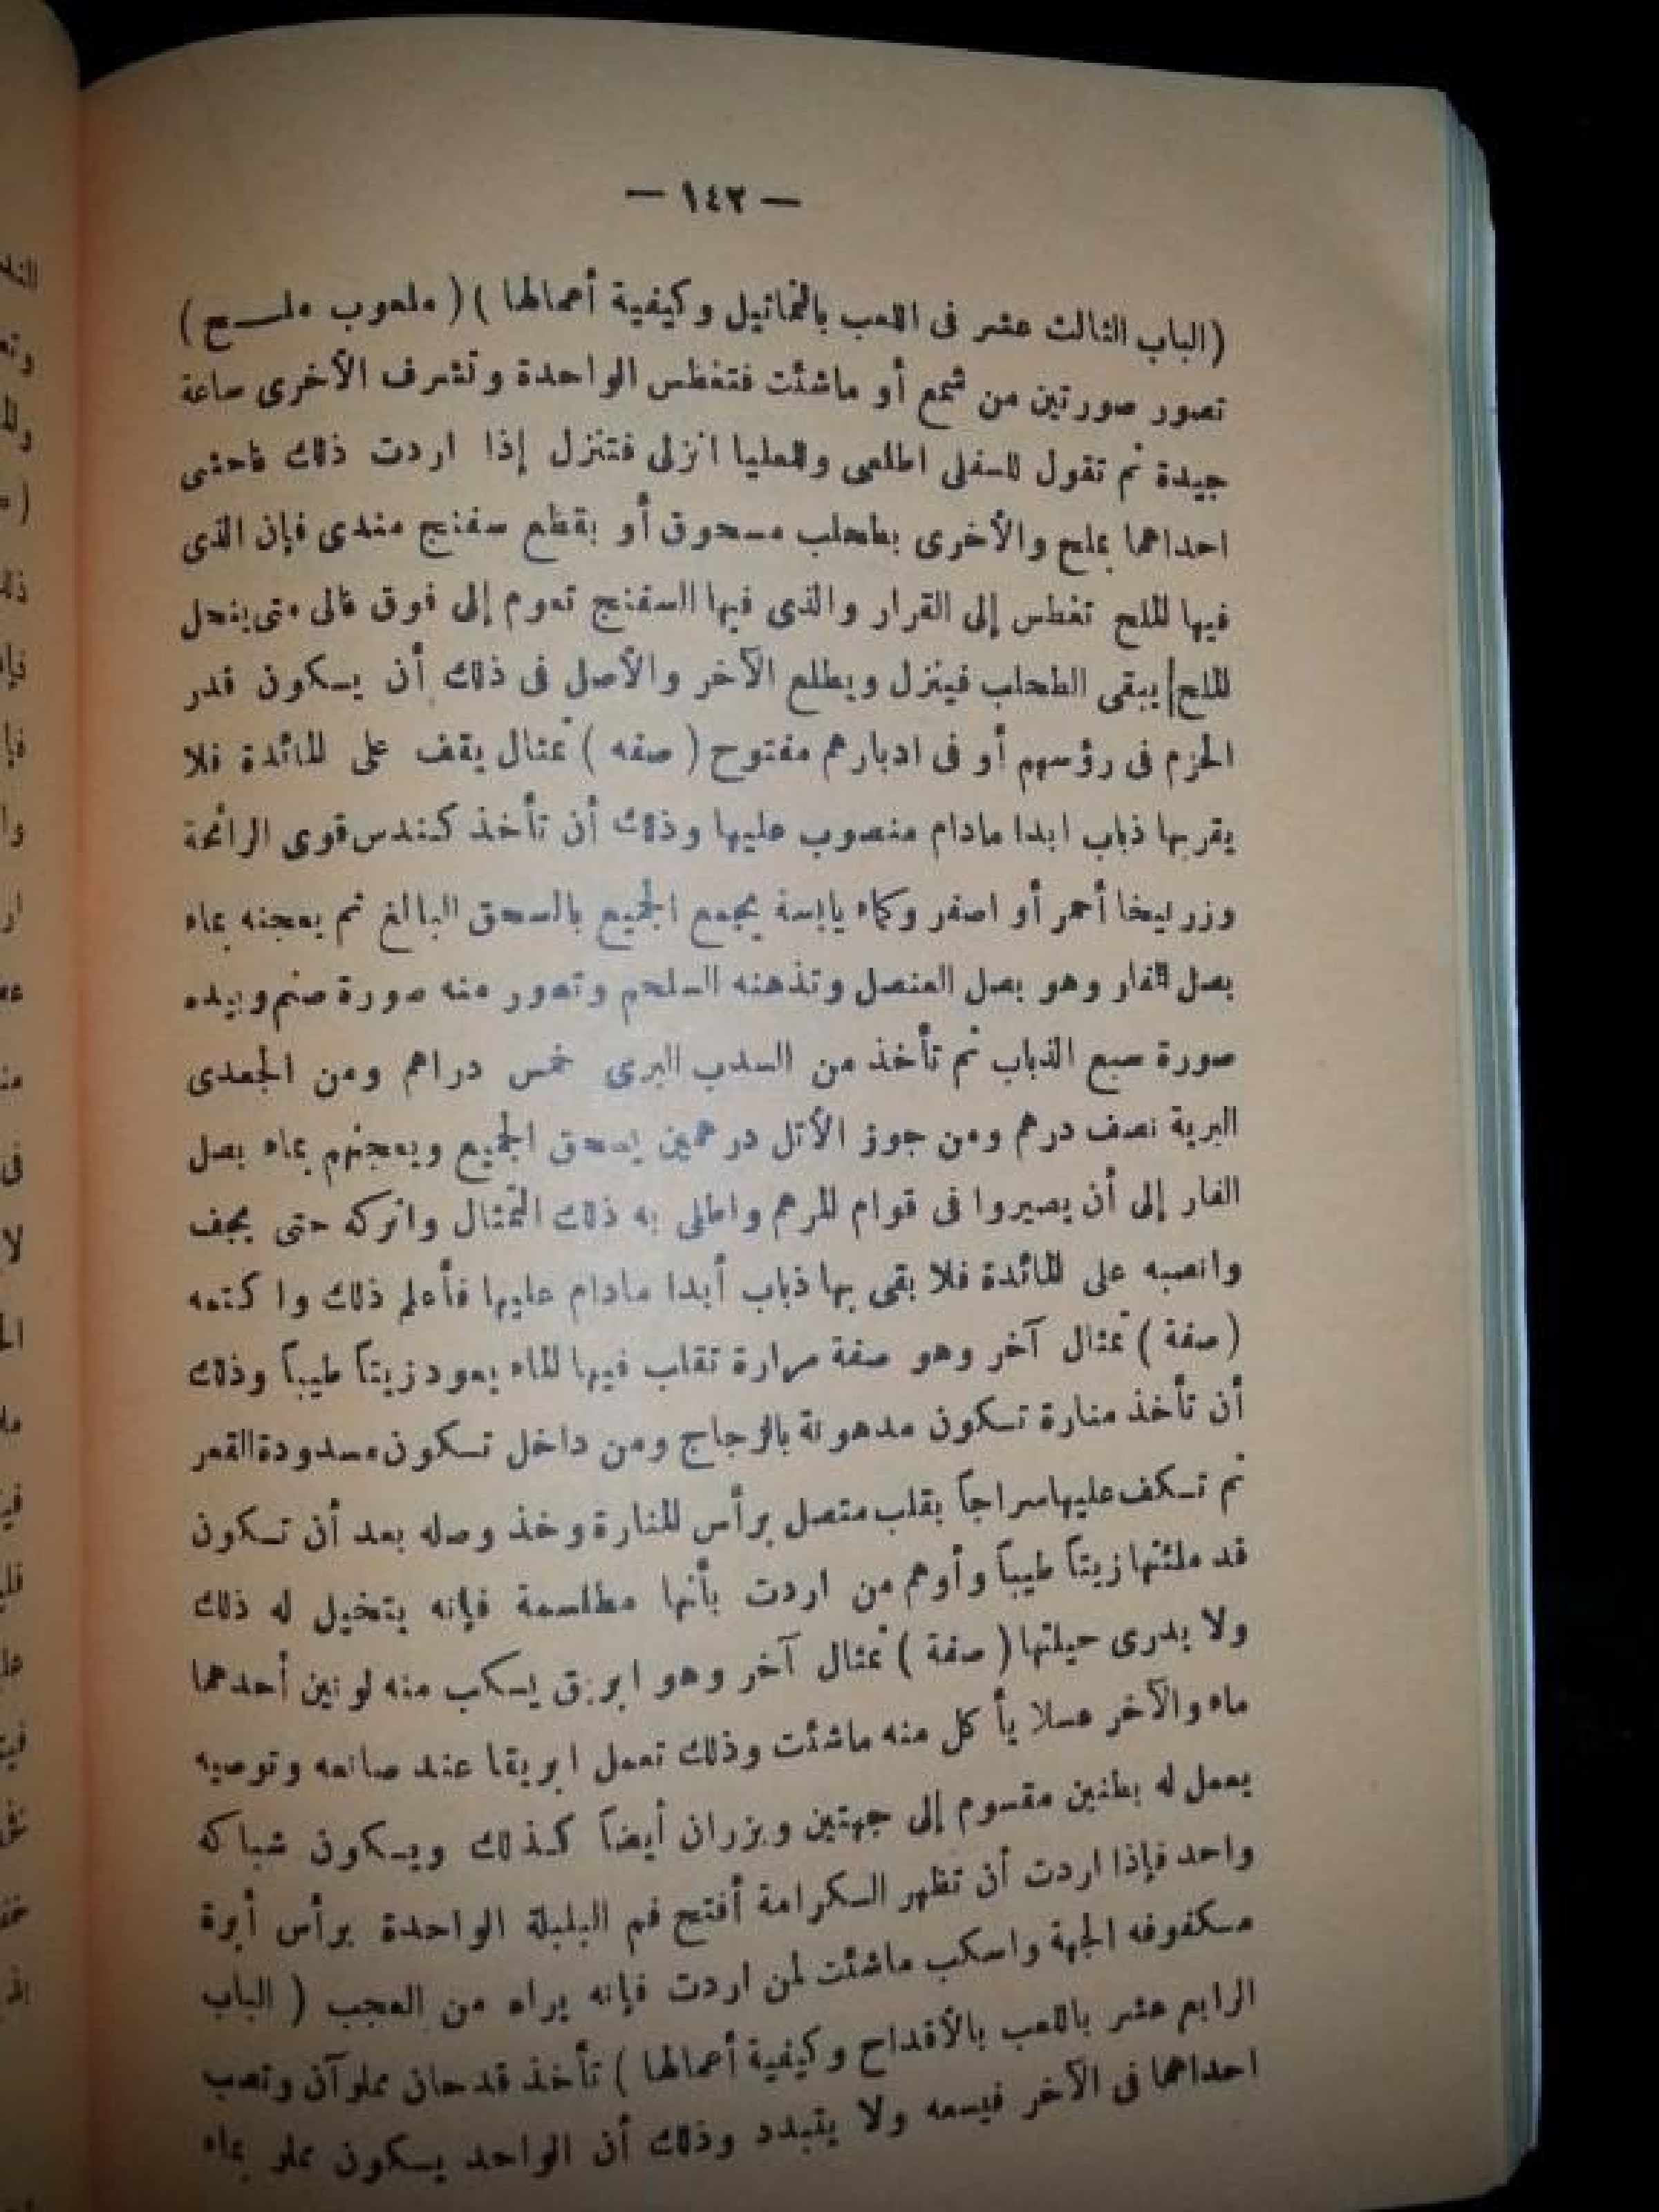 — ١٤٢ —
(الباب الثالث عشر فى اللعب بالتماثيل وكيفية أعمالها ) ( ملعوب ملـــيح )
تصور صورتين من شمع أو ماشئت فتغطس الواحدة وتشرف الآخرى ساعة
جيدة ثم تقول للسفلى اطلعى وللعليا انزلى فتنزل إذا اردت ذلك فاحشى
احداهما بملح والأخرى بطحلب مسحوق أو بقطع سفنج مندى فإن الذى
فيها الملح تغطس إلى القرار والذى فيها السفنج تعوم إلى فوق فالى متى ينحل
الملح يبقى الطحلب فينزل ويطلع الآخر والأصل فى ذلك أن يسكون قدر
الحزم فى رؤسهم أو فى ادبارهم مفتوح ( صفه ) تمثال يقف على المائدة فلا
يقربها ذباب ابدا مادام منصوب عليها وذلك أن تأخذ كندس قوى الرائحة
وزرنيخا أحمر أو اصفر وكماء يابسة يجمع الجميع بالسحق البالغ ثم يعجنه بماء
بصل الفار وهو بصل العنصل وتذهنه السلحم وتصور منه صورة صنم وبيده
صورة سبع الذباب ثم تأخذ من السدب البرى خمس دراهم ومن الجعدى
البرية نصف درهم ومن جوز الأثل درهمين يسحق الجميع ويعجنهم بماء بصل
الفار إلى أن يصيروا فى قوام المرهم واطلى به ذلك التمثال واتركه حتى يجف
وانصبه على المائدة فلا بقى بها ذباب أبدا مادام عليها فأعلم ذلك واكتمه
(صفة ) تمثال آخر وهو صفة مرارة تقلب فيها الماء يعود زيتاً طيباً وذلك
أن تأخذ منارة تسكون مدهونة بالزجاج ومن داخل تسكون مسدودة القعر
ثم تسكف عليها سراجاً بقلب متصل برأس المنارة وخذ وصله بعد أن تسكون
قد ملئتها زيتاً طيباً وأوهم من اردت بأنها مطلسمة فإنه يتخيل له ذلك
ولا يدرى حيلتها ( صفة ) تمثال آخر وهو ابريق يسكب منه لونين أحدهما
ماء والآخر عسلا يأكل منه ماشئت وذلك تعمل ابريقا عند صانعه وتوصيه
يعمل له بطنين مقسوم إلى جهتين وبزران أيضاً كذلك ويسكون شباكه
واحد فإذا اردت أن تظهر السكرامة أفتح فم البلبلة الواحدة برأس أبرة
مسكفوفه الجهة واسكب ماشئت لمن اردت فإنه يراه من العجب ( الباب
الرابع عشر باللعب بالأقداح وكيفية أعمالها ) تأخذ قدحان مملوآن وتصب
احداهما فى الآخر فيسعه ولا يتبدد وذلك أن الواحد يسكون مملو بماء